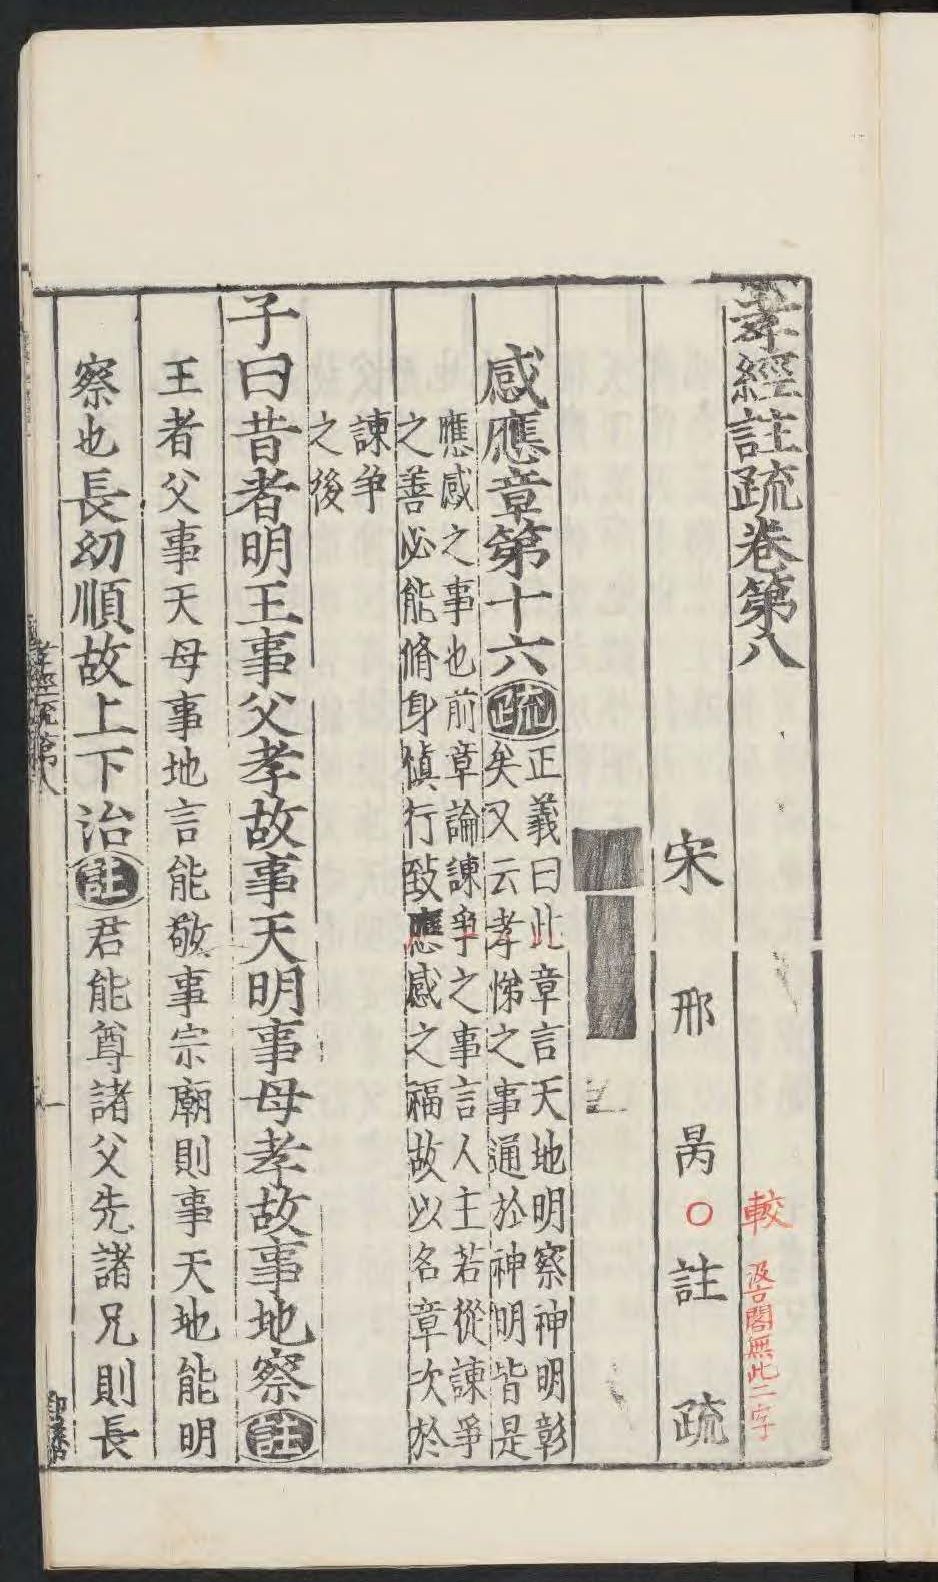 孝經註疏卷第八
較
汲古閣無此二字
宋邢昺○註疏
感應章第十六疏正義曰此章言天地明察神明彰
矣又云孝悌之事通於神明皆是
應感之事也前章論諫爭之事言人主若從諫爭
之善必能脩身愼行致應感之福故以名章次於
諫爭
之後
子曰昔者明王事父孝故事天明事母孝故事地察註
王者父事天母事地言能敬事宗廟則事天地能明
察也長幼順故上下治註君能尊諸父先諸兄則長
孝經疏第八
一